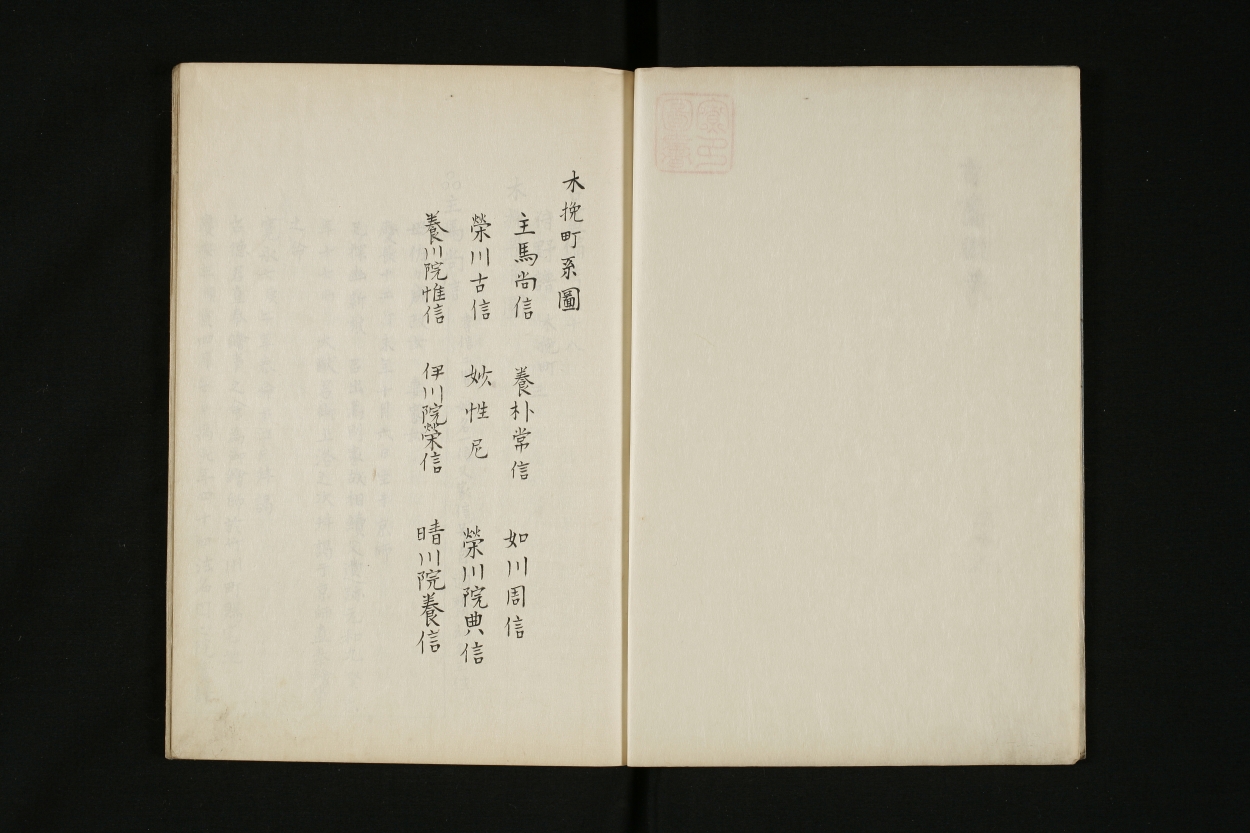 木挽町系圖
主馬尚信　養朴常信　如川周信
榮川古信　妙性尼　榮川院典信
養川院惟信　伊川院榮信　晴川院養信